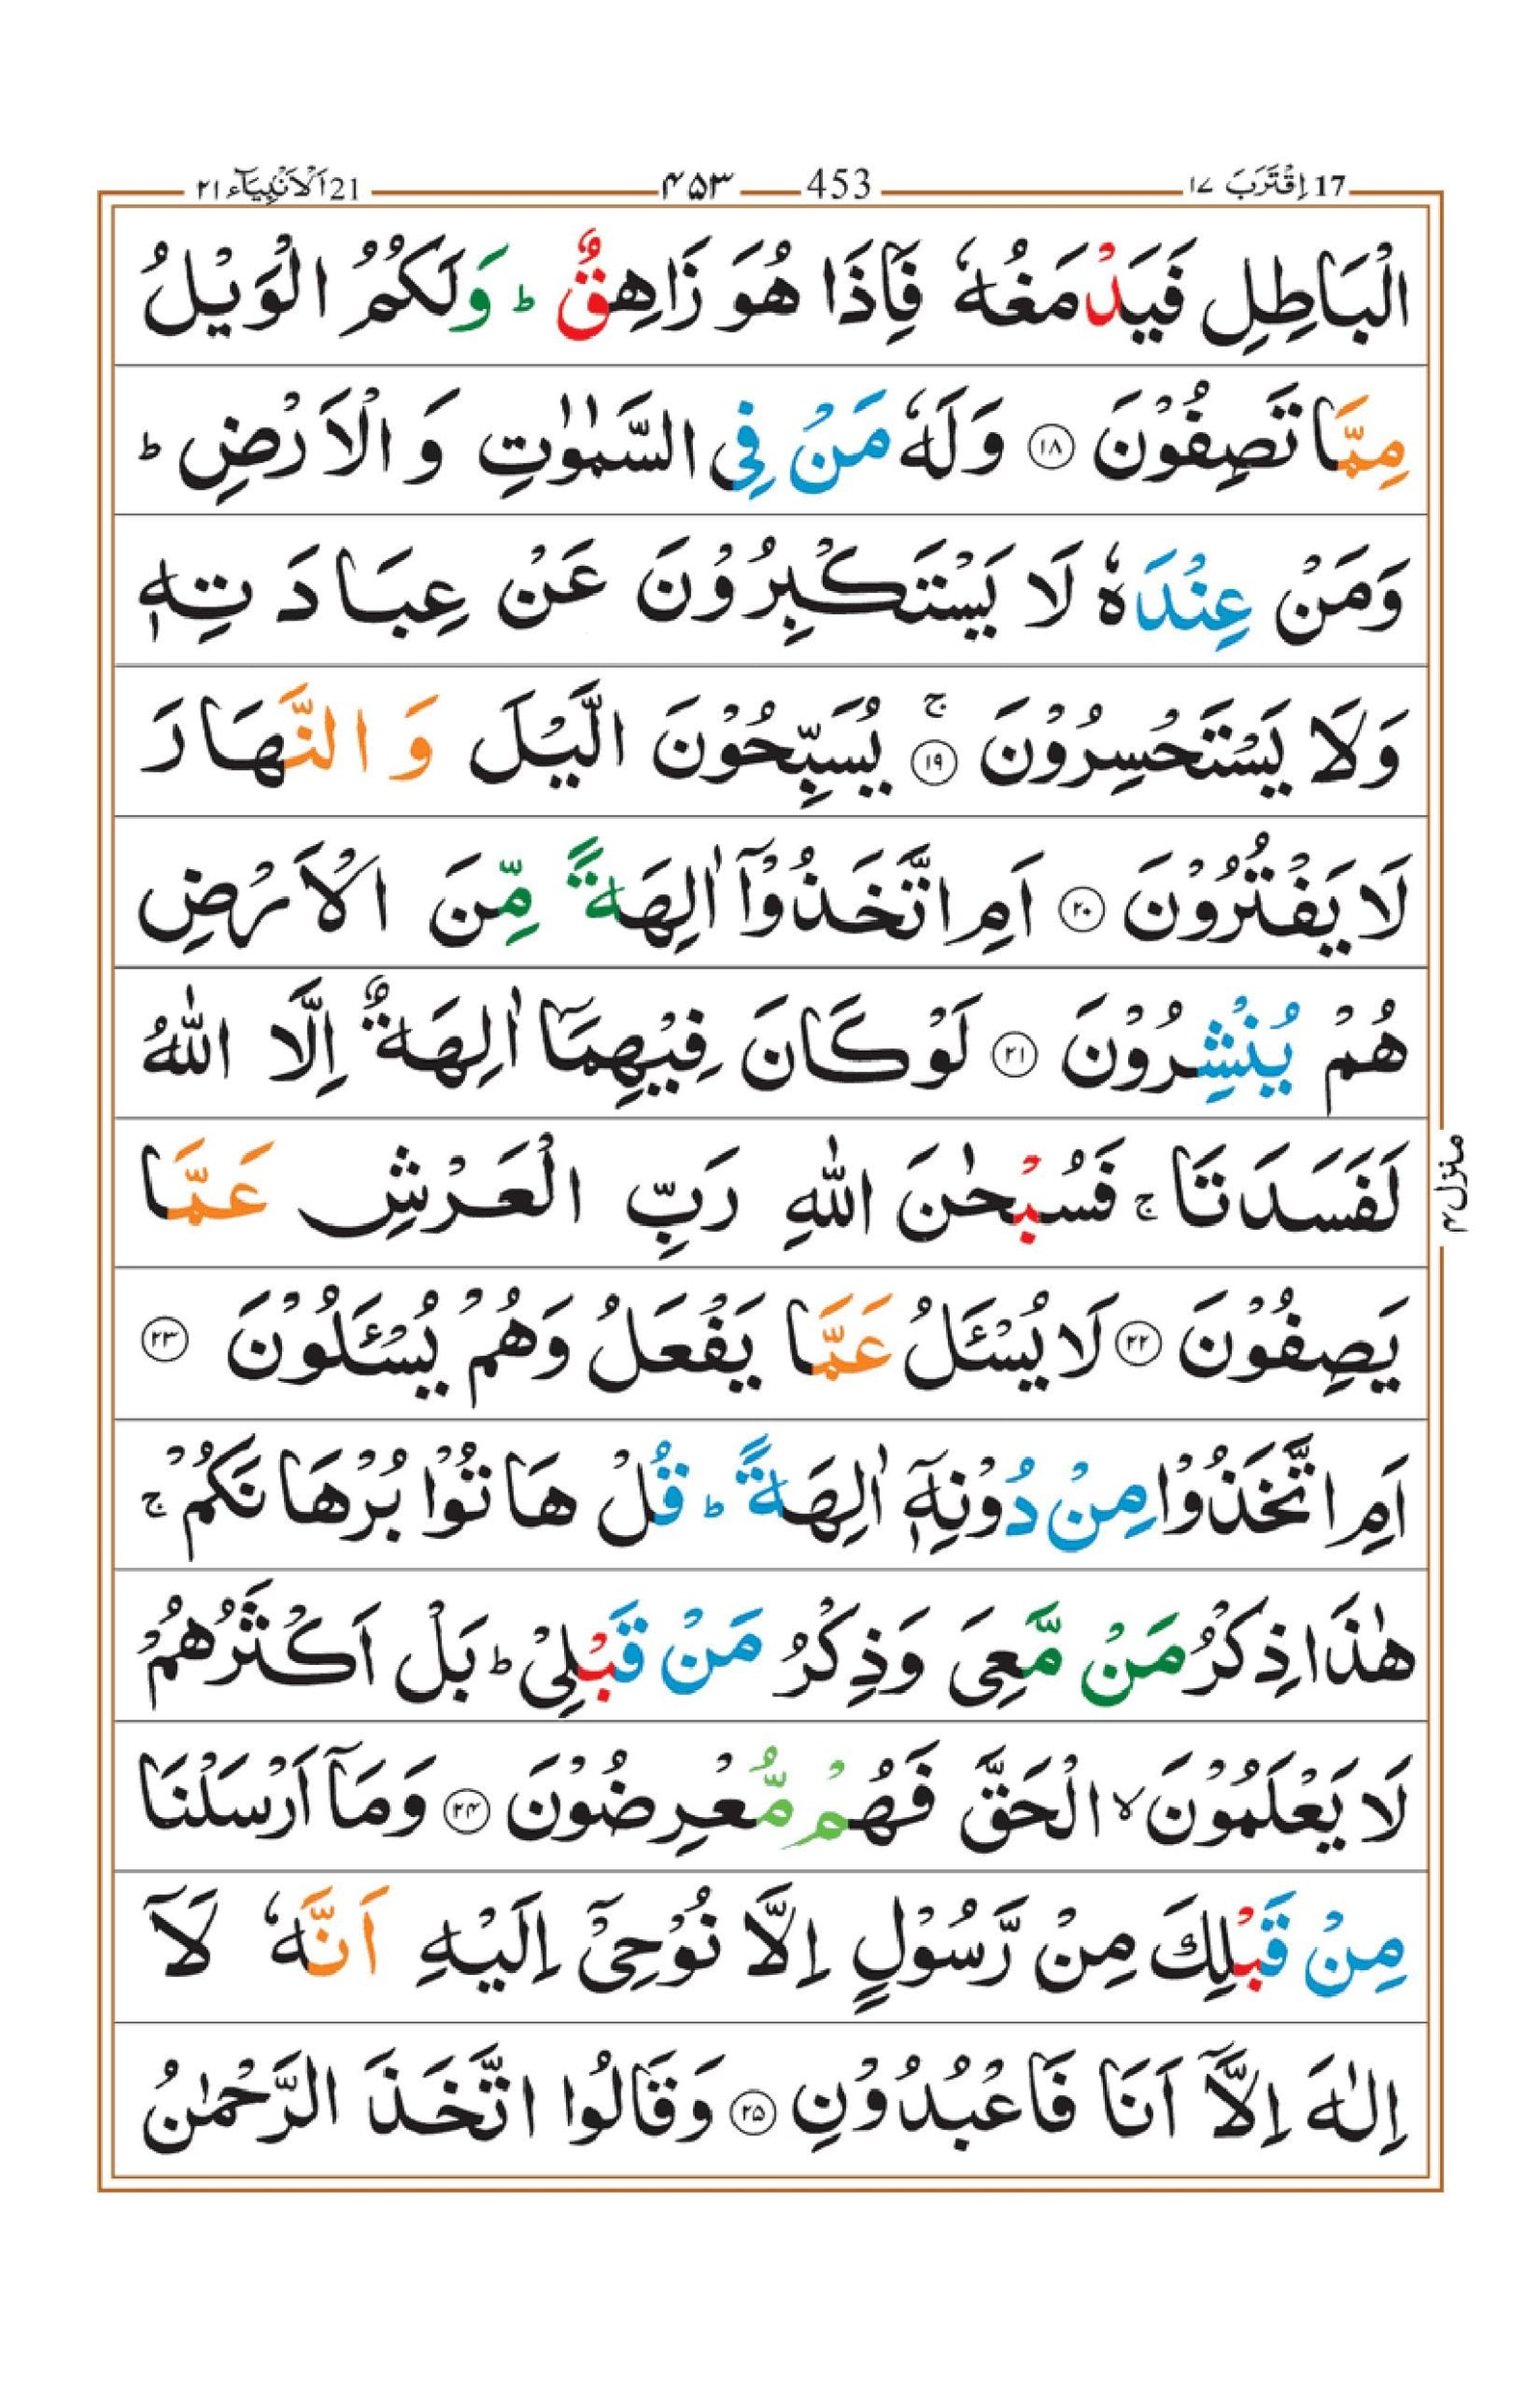 17 اِقْتَرَبَ ۱۷ 453 ۴۵۳ 21 اَلْاَنْۢبِيَآء ۲۱
الْبَاطِلِ فَيَدْمَغُهٗ فَاِذَا هُوَ زَاهِقٌ ؕ وَلَكُمُ الْوَيْلُ
مِمَّا تَصِفُوْنَ ۝۱۸ وَلَهٗ مَنْ فِى السَّمٰوٰتِ وَ الْاَرْضِ ؕ
وَمَنْ عِنْدَهٗ لَا يَسْتَكْبِرُوْنَ عَنْ عِبَادَتِهٖ
وَلَا يَسْتَحْسِرُوْنَ ۚ۝۱۹ يُسَبِّحُوْنَ الَّيْلَ وَ النَّهَارَ
لَا يَفْتُرُوْنَ ۝۲۰ اَمِ اتَّخَذُوْٓا اٰلِهَةً مِّنَ الْاَرْضِ
هُمْ يُنْشِرُوْنَ ۝۲۱ لَوْ كَانَ فِيْهِمَآ اٰلِهَةٌ اِلَّا اللّٰهُ
لَفَسَدَتَا ۚ فَسُبْحٰنَ اللّٰهِ رَبِّ الْعَرْشِ عَمَّا
يَصِفُوْنَ ۝۲۲ لَا يُسْئَلُ عَمَّا يَفْعَلُ وَهُمْ يُسْئَلُوْنَ ۝۲۳
اَمِ اتَّخَذُوْا مِنْ دُوْنِهٖٓ اٰلِهَةً ؕ قُلْ هَاتُوْا بُرْهَانَكُمْ ۚ
هٰذَا ذِكْرُ مَنْ مَّعِىَ وَذِكْرُ مَنْ قَبْلِىْ ؕ بَلْ اَكْثَرُهُمْ
لَا يَعْلَمُوْنَ ۙ الْحَقَّ فَهُمْ مُّعْرِضُوْنَ ۝۲۴ وَمَآ اَرْسَلْنَا
مِنْ قَبْلِكَ مِنْ رَّسُوْلٍ اِلَّا نُوْحِىْٓ اِلَيْهِ اَنَّهٗ لَآ
اِلٰهَ اِلَّآ اَنَا فَاعْبُدُوْنِ ۝۲۵ وَقَالُوا اتَّخَذَ الرَّحْمٰنُ
منزل ۴